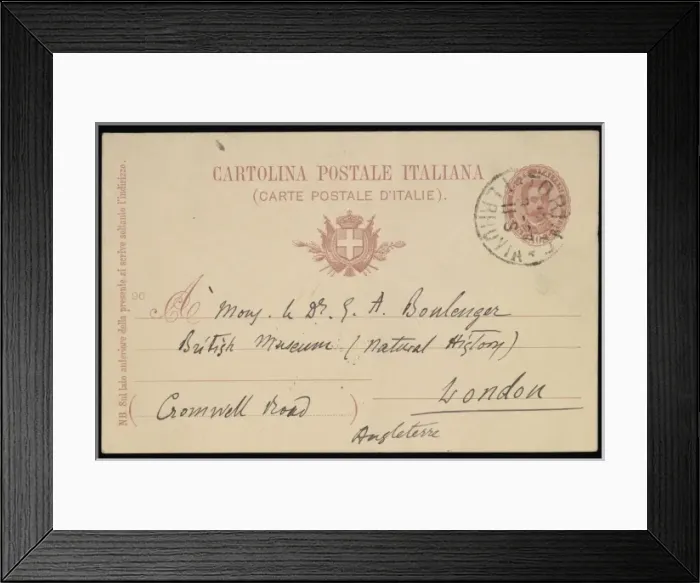 CARTOLINA POSTALE ITALIANA
(CARTE POSTALE D'ITALIE).
NB. Sul lato anteriore della presente si scrive soltanto l'indirizzo.
90
A Mons. le Dr. G. A. Boulenger
British Museum (Natural History)
London
(Cromwell Road)
Angleterre
TORINO
FERROVIA